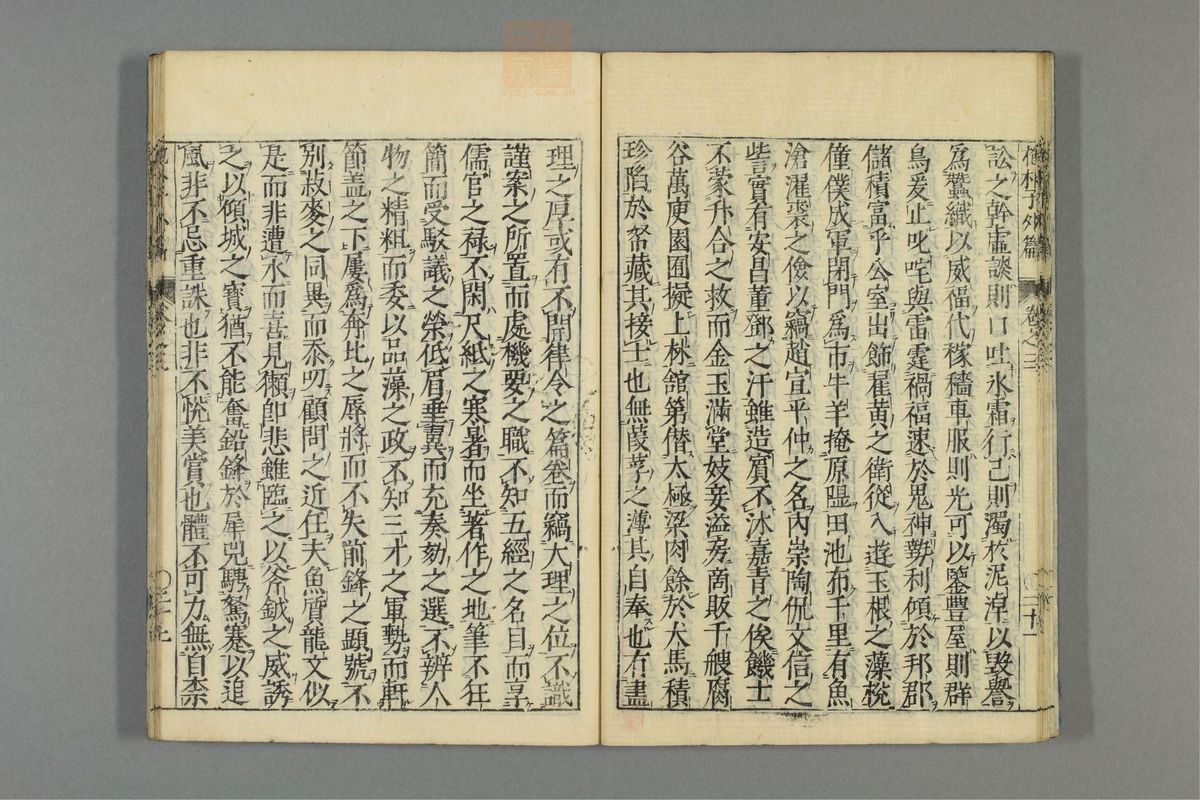 抱朴子外篇 卷之三
訟之幹虛談則口吐氷霜行己則濁於泥潦以毀譽
爲蠶織以威福代稼穡車服則光可以鑒豐屋則群
鳥爰止叱咤與雷霆禍福速於鬼神勢利傾於邦郡
儲積富乎公室出飾翟黃之衛從入遊玉根之藻梲
僮僕成軍閉門爲市牛羊掩原隰田池布千里有魚
滄濯裘之儉以竊趙宣平仲之名內崇陶侃文信之
訾實有安昌董鄧之汗雖造賓不沐嘉青之俟饑士
不蒙升合之救而金玉滿堂妓妾溢房商販千艘腐
谷萬庾園囿擬上林舘第僣太極梁肉餘於犬馬積
珍陷於帑藏其接士也無葭莩之薄其自奉也有盡
理之厚或有不開律令之篇卷而竊大理之位不識
謹案之所置而處機要之職不知五經之名目而享
儒官之祿不閑尺紙之寒暑而坐著作之地筆不狂
簡而受駁議之榮低眉垂翼而充奏劾之選不辨人
物之精粗而委以品藻之政不知三才之軍勢而軒
節盖之下屢爲奔北之辱將而不失前鋒之顯號不
別菽麥之同異而忝叨顧問之近任夫魚質龍文似
是而非遭水而喜見獺卽悲雖臨之以斧鉞之威誘
之以傾城之寶猶不能奮鉛鋒於犀兕騁駑蹇以追
風非不忌重誅也非不恱美賞也體不可力無自柰